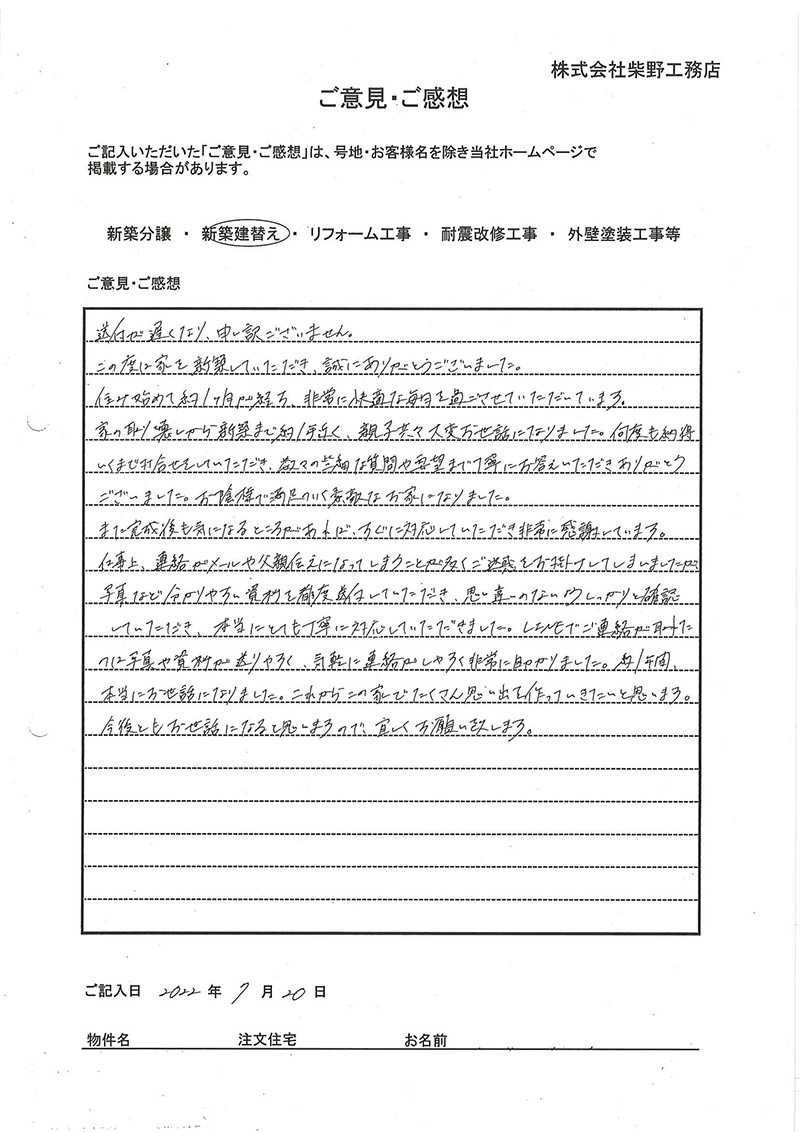 株式会社柴野工務店
ご意見・ご感想
ご記入いただいた「ご意見・ご感想」は、号地・お客様名を除き当社ホームページで
掲載する場合があります。
新築分譲 ・ 新築建替え ・ リフォーム工事 ・ 耐震改修工事 ・ 外壁塗装工事等
ご意見・ご感想
送付が遅くなり、申し訳ございません。
この度は家を新築していただき、誠にありがとうございました。
住み始めて約1ヶ月が経ち、非常に快適な毎日を過ごさせていただいています。
家の取り壊しから新築まで約1年近く、親子共々大変お世話になりました。何度も納得
いくまで打合せをしていただき、数々の些細な質問や要望まで丁寧にお答えいただきありがとう
ございました。お陰様で満足のいく素敵なお家になりました。
また完成後も気になるところがあれば、すぐに対応していただき非常に感謝しています。
仕事上、連絡がメールや父親伝えになってしまうことが多くご迷惑をお掛けしてしまいましたが
写真など分かりやすい資料を都度送付していただき、思い違いのないようしっかりと確認
していただき、本当にとても丁寧に対応していただきました。LINEでご連絡が取れた
のは写真や資料が送りやすく、気軽に連絡がしやすく非常に助かりました。約1年間、
本当にお世話になりました。これからこの家でたくさん思い出を作っていきたいと思います。
今後ともお世話になると思いますので、宜しくお願い致します。
ご記入日 2022 年 7 月 20 日
物件名 注文住宅 お名前